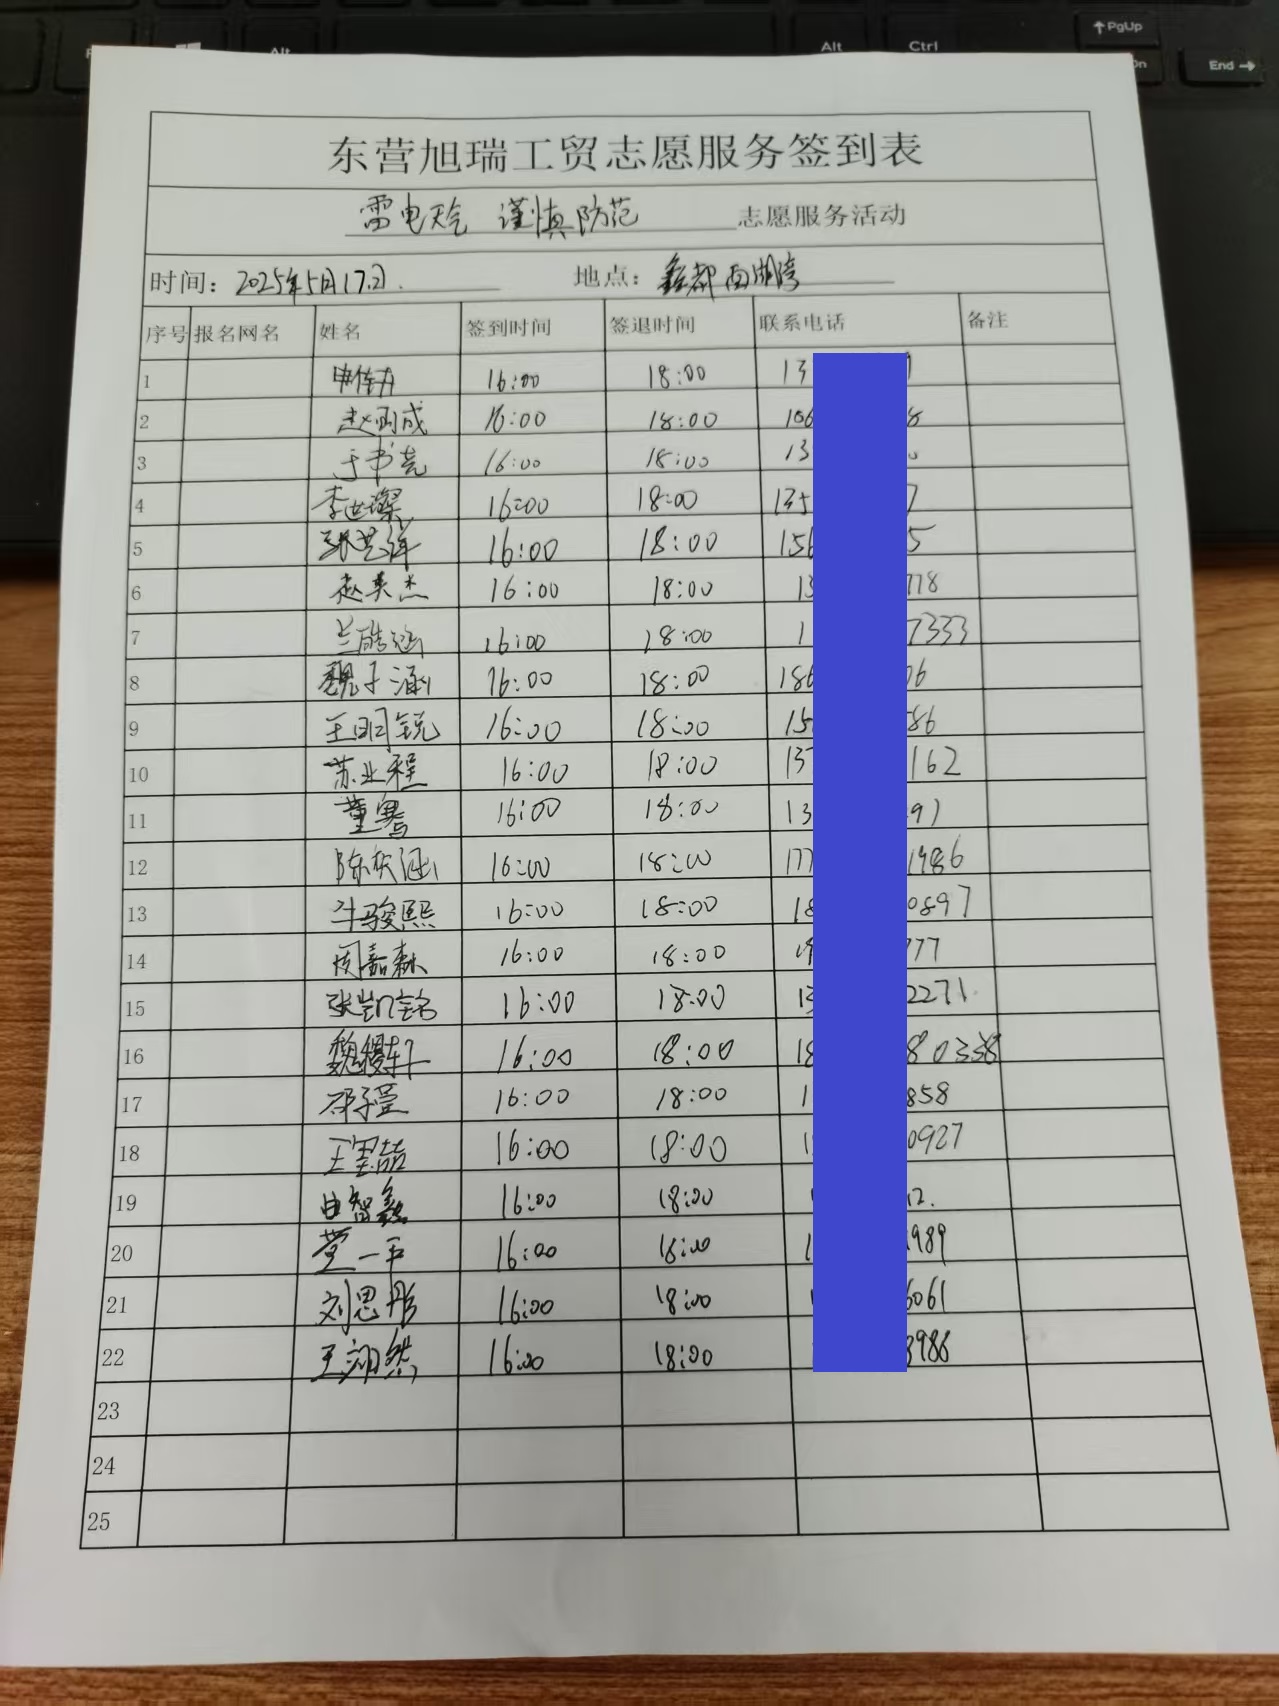 PgUp
Alt
Alt
Ctrl
End
东营旭瑞工贸志愿服务签到表
雷电天气 谨慎防范 志愿服务活动
时间：2025年5月17日. 地点：鑫都西湖湾
序号 报名网名 姓名 签到时间 签退时间 联系电话 备注
1 16:00 18:00 13
2 赵雨成 16:00 18:00 156 8
3 于书尧 16:00 18:00 13
4 李世璨 16:00 18:00 135 7
5 张艺译 16:00 18:00 156 5
6 赵英杰 16:00 18:00 13 718
7 兰皓涵 16:00 18:00 1 7333
8 魏子涵 16:00 18:00 186 06
9 王明锐 16:00 18:00 15 586
10 苏业程 16:00 18:00 137 162
11 董骞 16:00 18:00 13 97
12 陈依涵 16:00 18:00 177 1986
13 斗骏熙 16:00 18:00 18 0897
14 周嘉森 16:00 18:00 777
15 张凯铭 16:00 18:00 13 2271
16 魏稷轩 16:00 18:00 18 80338
17 邵子罡 16:00 18:00 1 858
18 王墨喆 16:00 18:00 1 0927
19 曲智鑫 16:00 18:00 12.
20 董一平 16:00 18:00 1 989
21 刘思彤 16:00 18:00 6061
22 王翊然 16:00 18:00 3986
23
24
25